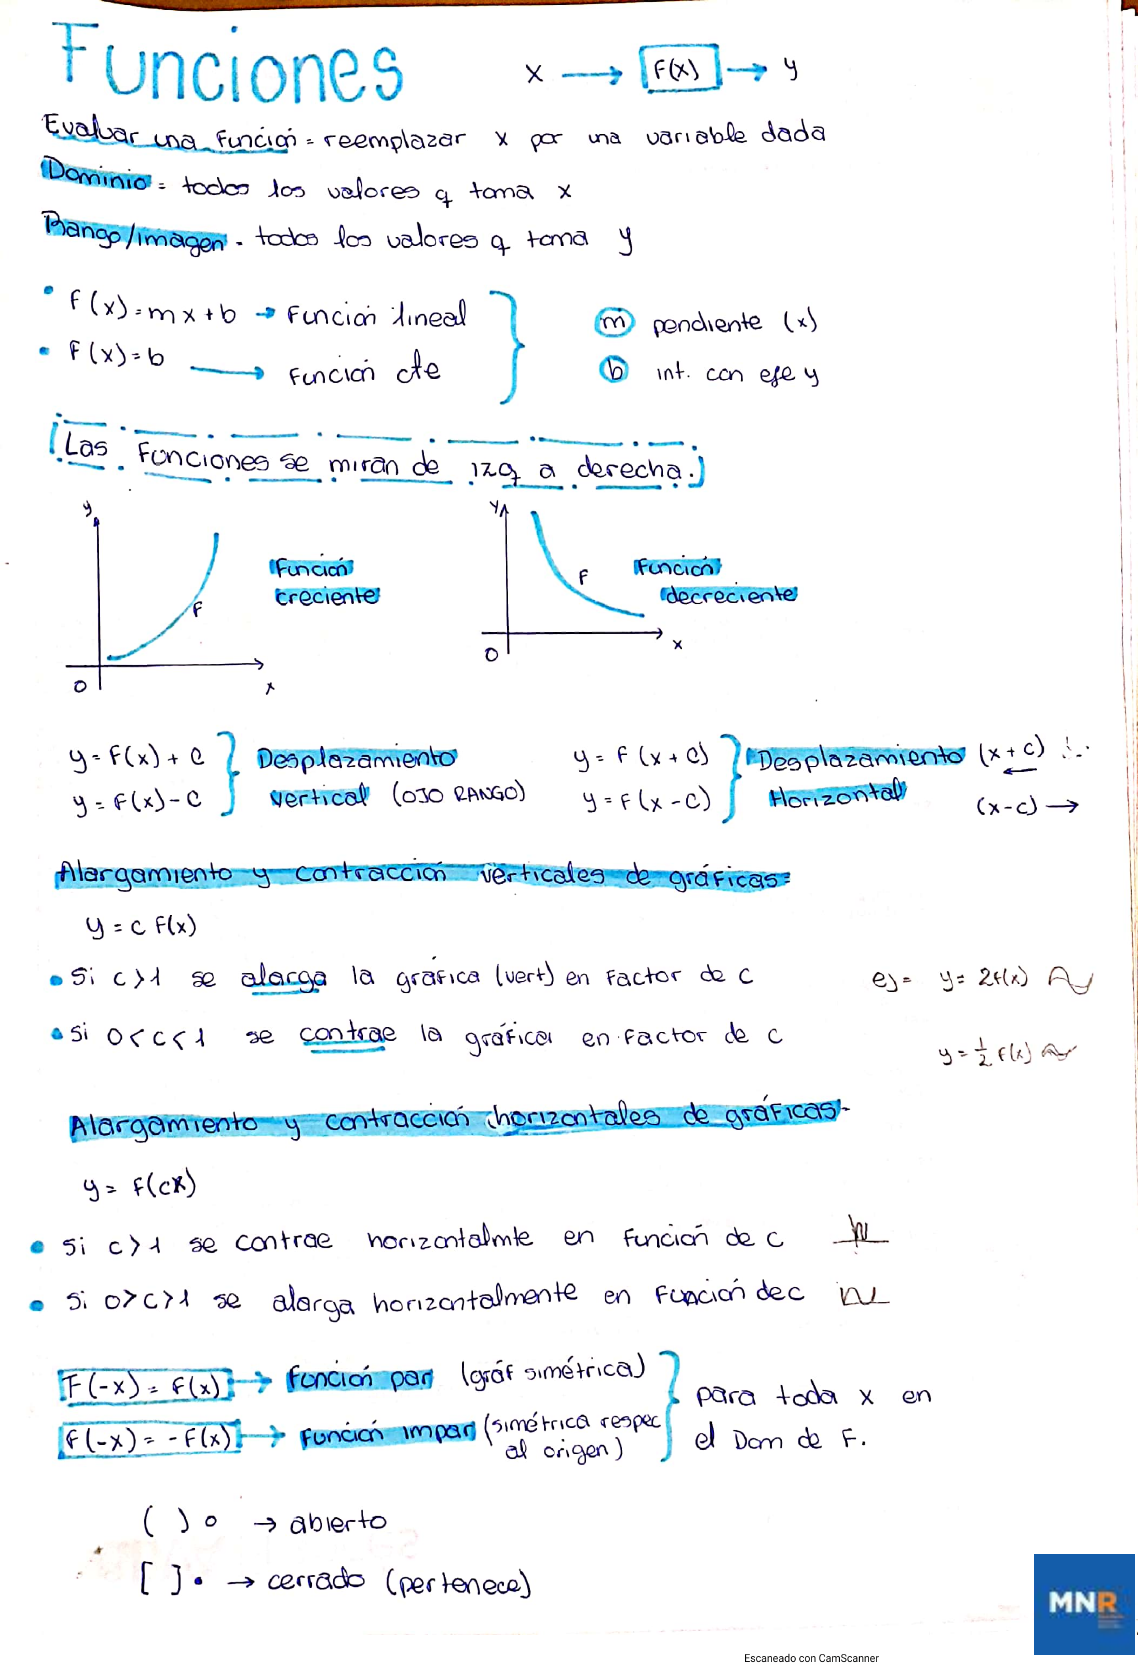 Funciones
x → F(x) → y
Evaluar una Función = reemplazar x por una variable dada
Dominio = todos los valores q toma x
Rango/imagen - todos los valores q toma y
• F(x) = mx + b → Función lineal
• F(x) = b → Función cte
m pendiente (x)
b int. con eje y
Las Funciones se miran de izq a derecha.
y
F
0
x
Función
creciente
y
F
0
x
Función
decreciente
y = F(x) + c
y = F(x) - c
Desplazamiento
vertical (OJO RANGO)
y = F(x + c)
y = F(x - c)
Desplazamiento
Horizontal
(x + c) ←
(x - c) →
Alargamiento y contracción verticales de gráficas:
y = c F(x)
• Si c > 1 se alarga la gráfica (vert) en Factor de c
ej = y = 2f(x)
• si 0 < c < 1 se contrae la gráfica en Factor de c
y = 1/2 F(x)
Alargamiento y contracción horizontales de gráficas-
y = F(cx)
• Si c > 1 se contrae horizontalmte en Función de c
• Si 0 > c > 1 se alarga horizontalmente en Función de c
F(-x) = F(x) → Función par (gráf simétrica)
F(-x) = -F(x) → Función impar (simétrica respec
al origen)
para toda x en
el Dom de F.
( ) ○ → abierto
[ ] • → cerrado (pertenece)
MNR
Escaneado con CamScanner